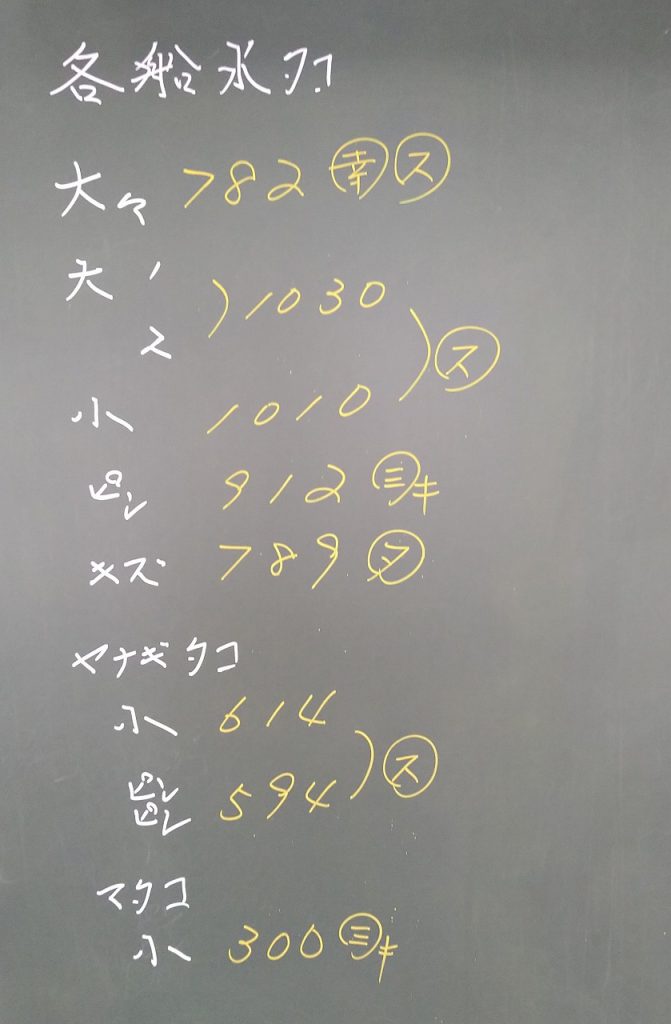 各船水タコ
大々 782 幸 ス
大 1 )1030
2
小 1010 )ス
ピン 912 三キ
キズ 789
ヤナギタコ
小 614
ピンピン 594 )ス
マタコ
小 300 三キ